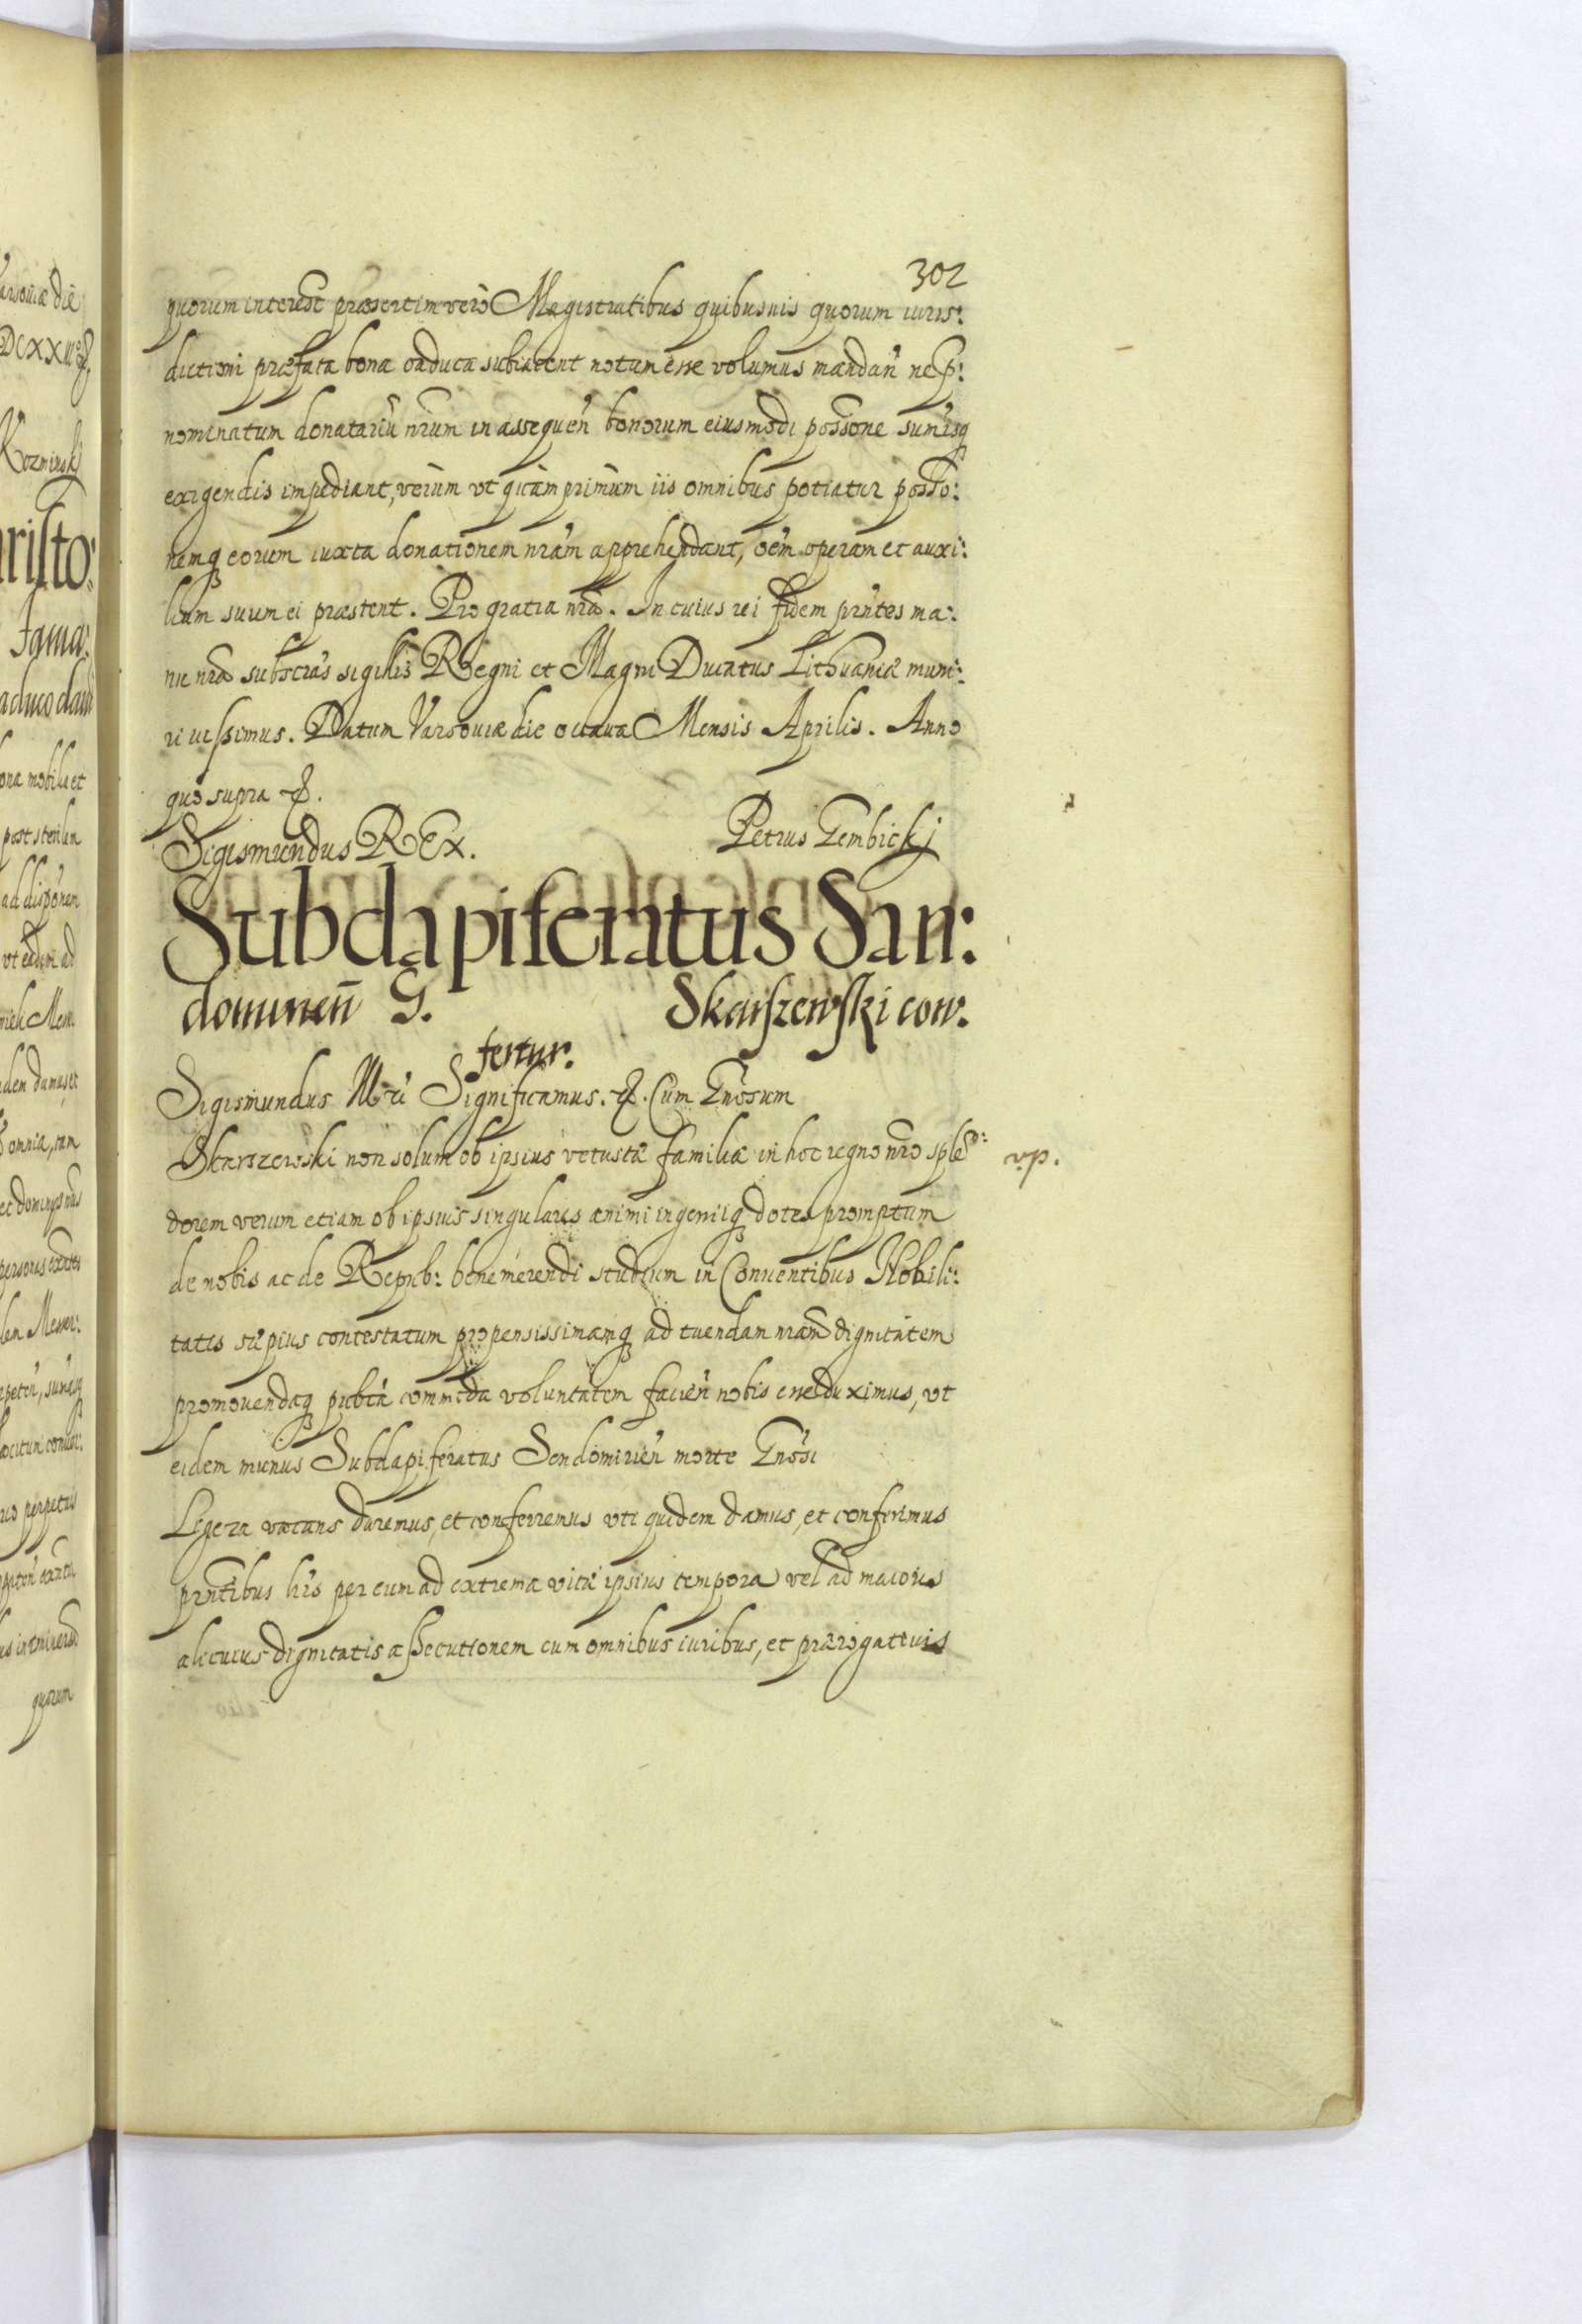 302
quorum interest præsertim vero Magistratibus quibusuis quorum iuris:
dictioni præfata bona caduca subiacent notum esse volumus mandań ne p:
nominatum donatariũ nrũm in assequeń bonorum eiusmodi possone sumisq
exigendis impediant, verùm vt quàm primùm iis omnibus potiatur posso:
nemq eorum iuxta donationem nrãm apprehendant, oẽm operam et auxi:
lium suum ei præstent. Pro gratia nrã. In cuius rei fidem prñtes ma:
nu nrã subscras sigillis Regni et Magni Ducatus Lithuaniæ muni:
ri iussimus. Datum Varsouiæ die octaua Mensis Aprilis. Anno
quo supra &.
Sigismundus REx. Petrus Gembickj
Subdapiferatus San:
domirień G. Skarszewski con:
fertur.
Sigismundus III Significamus. &. Cum Gnõsum
Skarszewski non solum ob ipsius vetustæ familiæ in hoc regno nrõ splẽ:
dorem verum etiam ob ipsius singulares animi ingeniiq dotes promptum
de nobis ac de Repub: bene merendi studium in Conuentibus Nobili:
tatis sæpius contestatum propensissimamq ad tuendam nrãm dignitatem
promouendaq publca commoda voluntatem facień nobis esse duximus, vt
eidem munus Subdapiferatus Sendomirień morte Gnõsi
Ligeza vacans daremus, et conferremus vti quidem damus, et conferimus
prñtibus lris per eum ad extrema vitæ ipsius tempora vel ad maioris
alicuius dignitatis assecutionem cum omnibus iuribus, et prærogatiuis